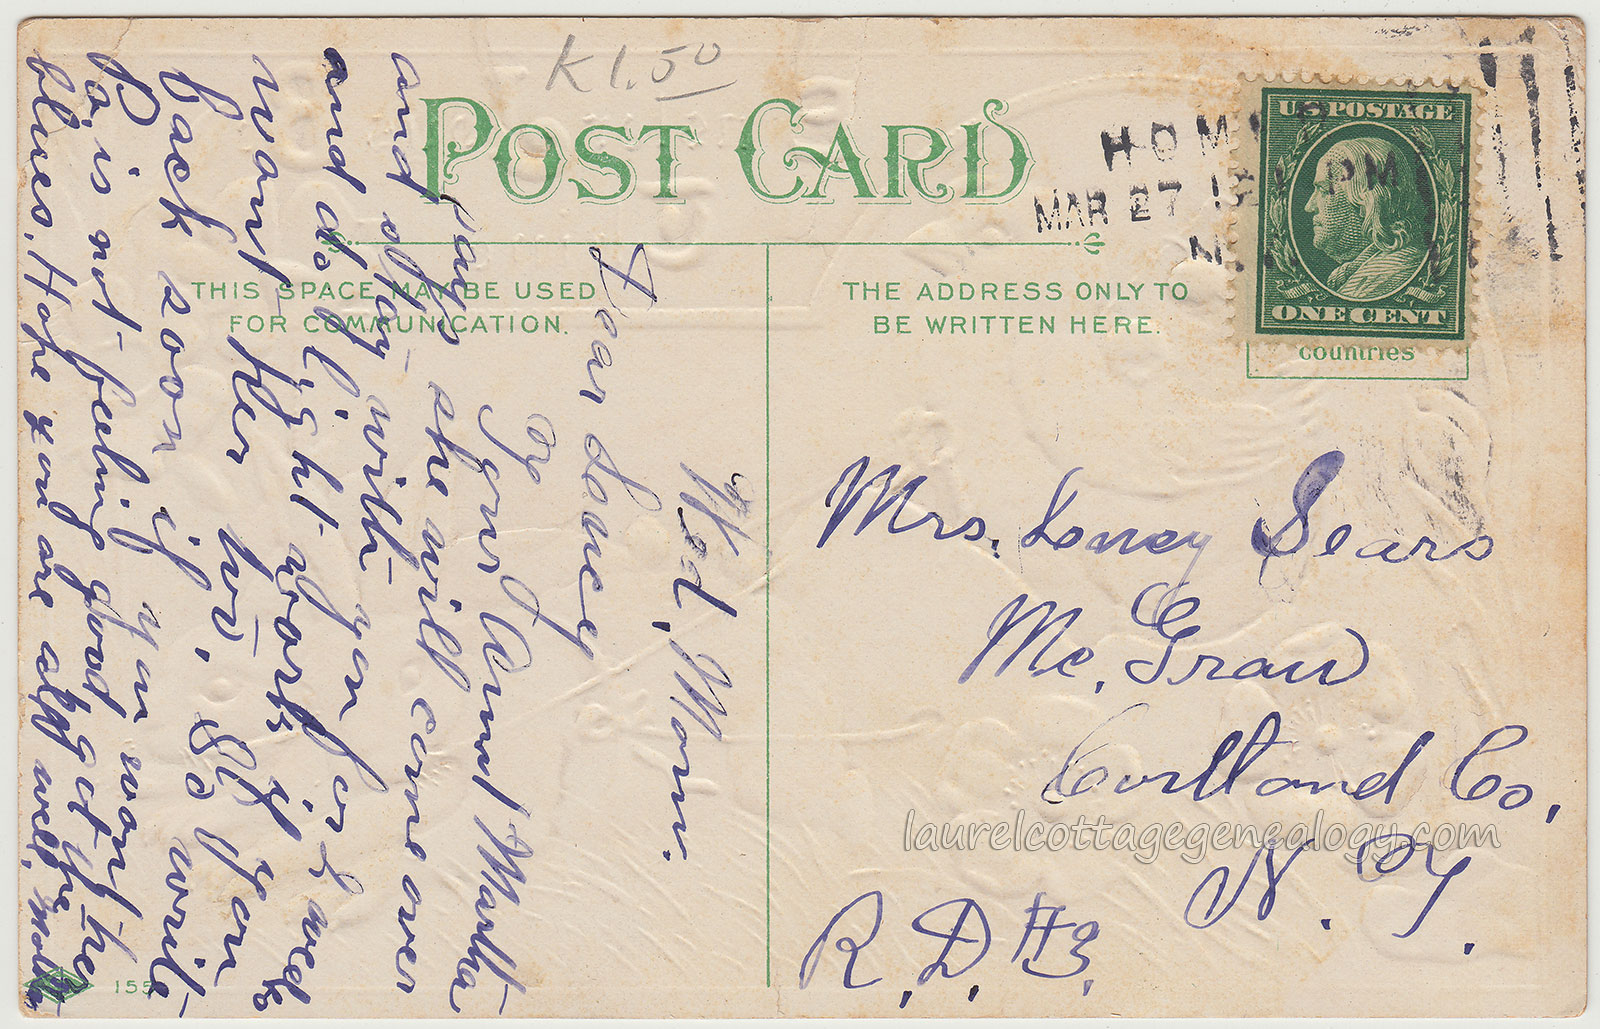 K 1.50
POST CARD
HOM
MAR 27
PM
N.
U.S. POSTAGE
ONE CENT
countries
THIS SPACE MAY BE USED
FOR COMMUNICATION.
THE ADDRESS ONLY TO
BE WRITTEN HERE.
Wed, Morn.
Dear Loney
Your Aunt Martha
says she will come over
and stay with
and do light work if
want her for. If you
back soon if you wont her
Pa, is not feeling good got the
blues. Hope you are all well.
Mrs. Loney Sears
Mc. Graw
Cortland Co,
N. Y.
R. D. #3.
155
laurelcottagegenealogy.com